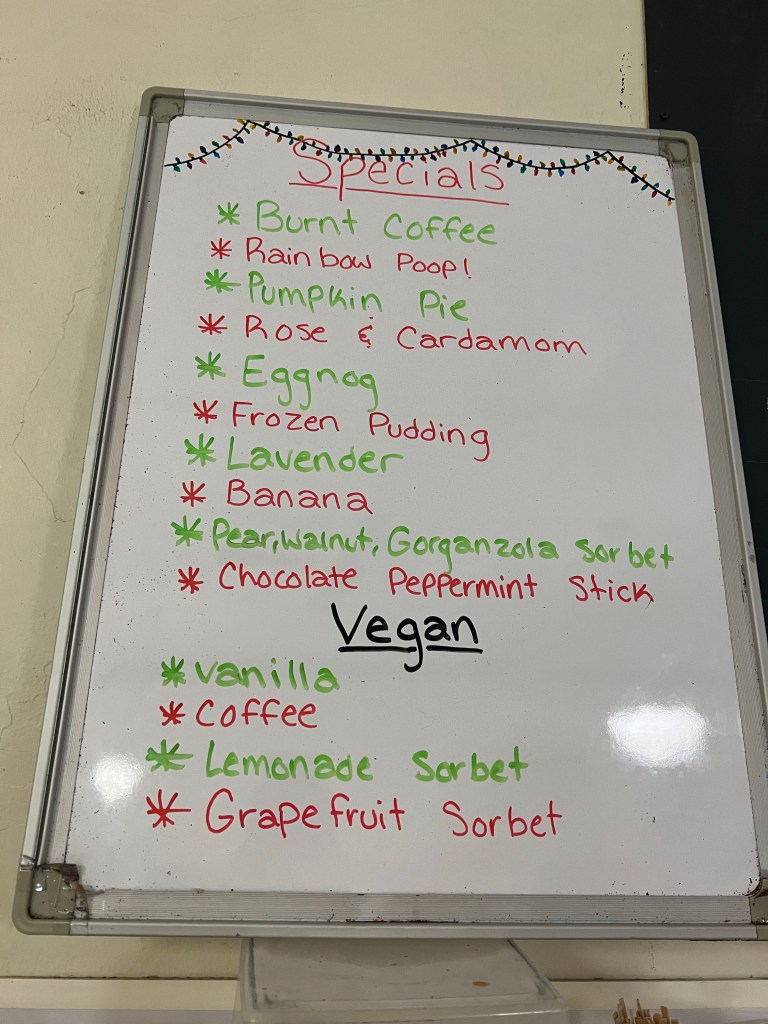 Specials
* Burnt Coffee
* Rainbow Poop!
* Pumpkin Pie
* Rose & Cardamom
* Eggnog
* Frozen Pudding
* Lavender
* Banana
* Pear, walnut, Gorganzola Sorbet
* Chocolate Peppermint Stick
Vegan
* Vanilla
* Coffee
* Lemonade Sorbet
* Grapefruit Sorbet